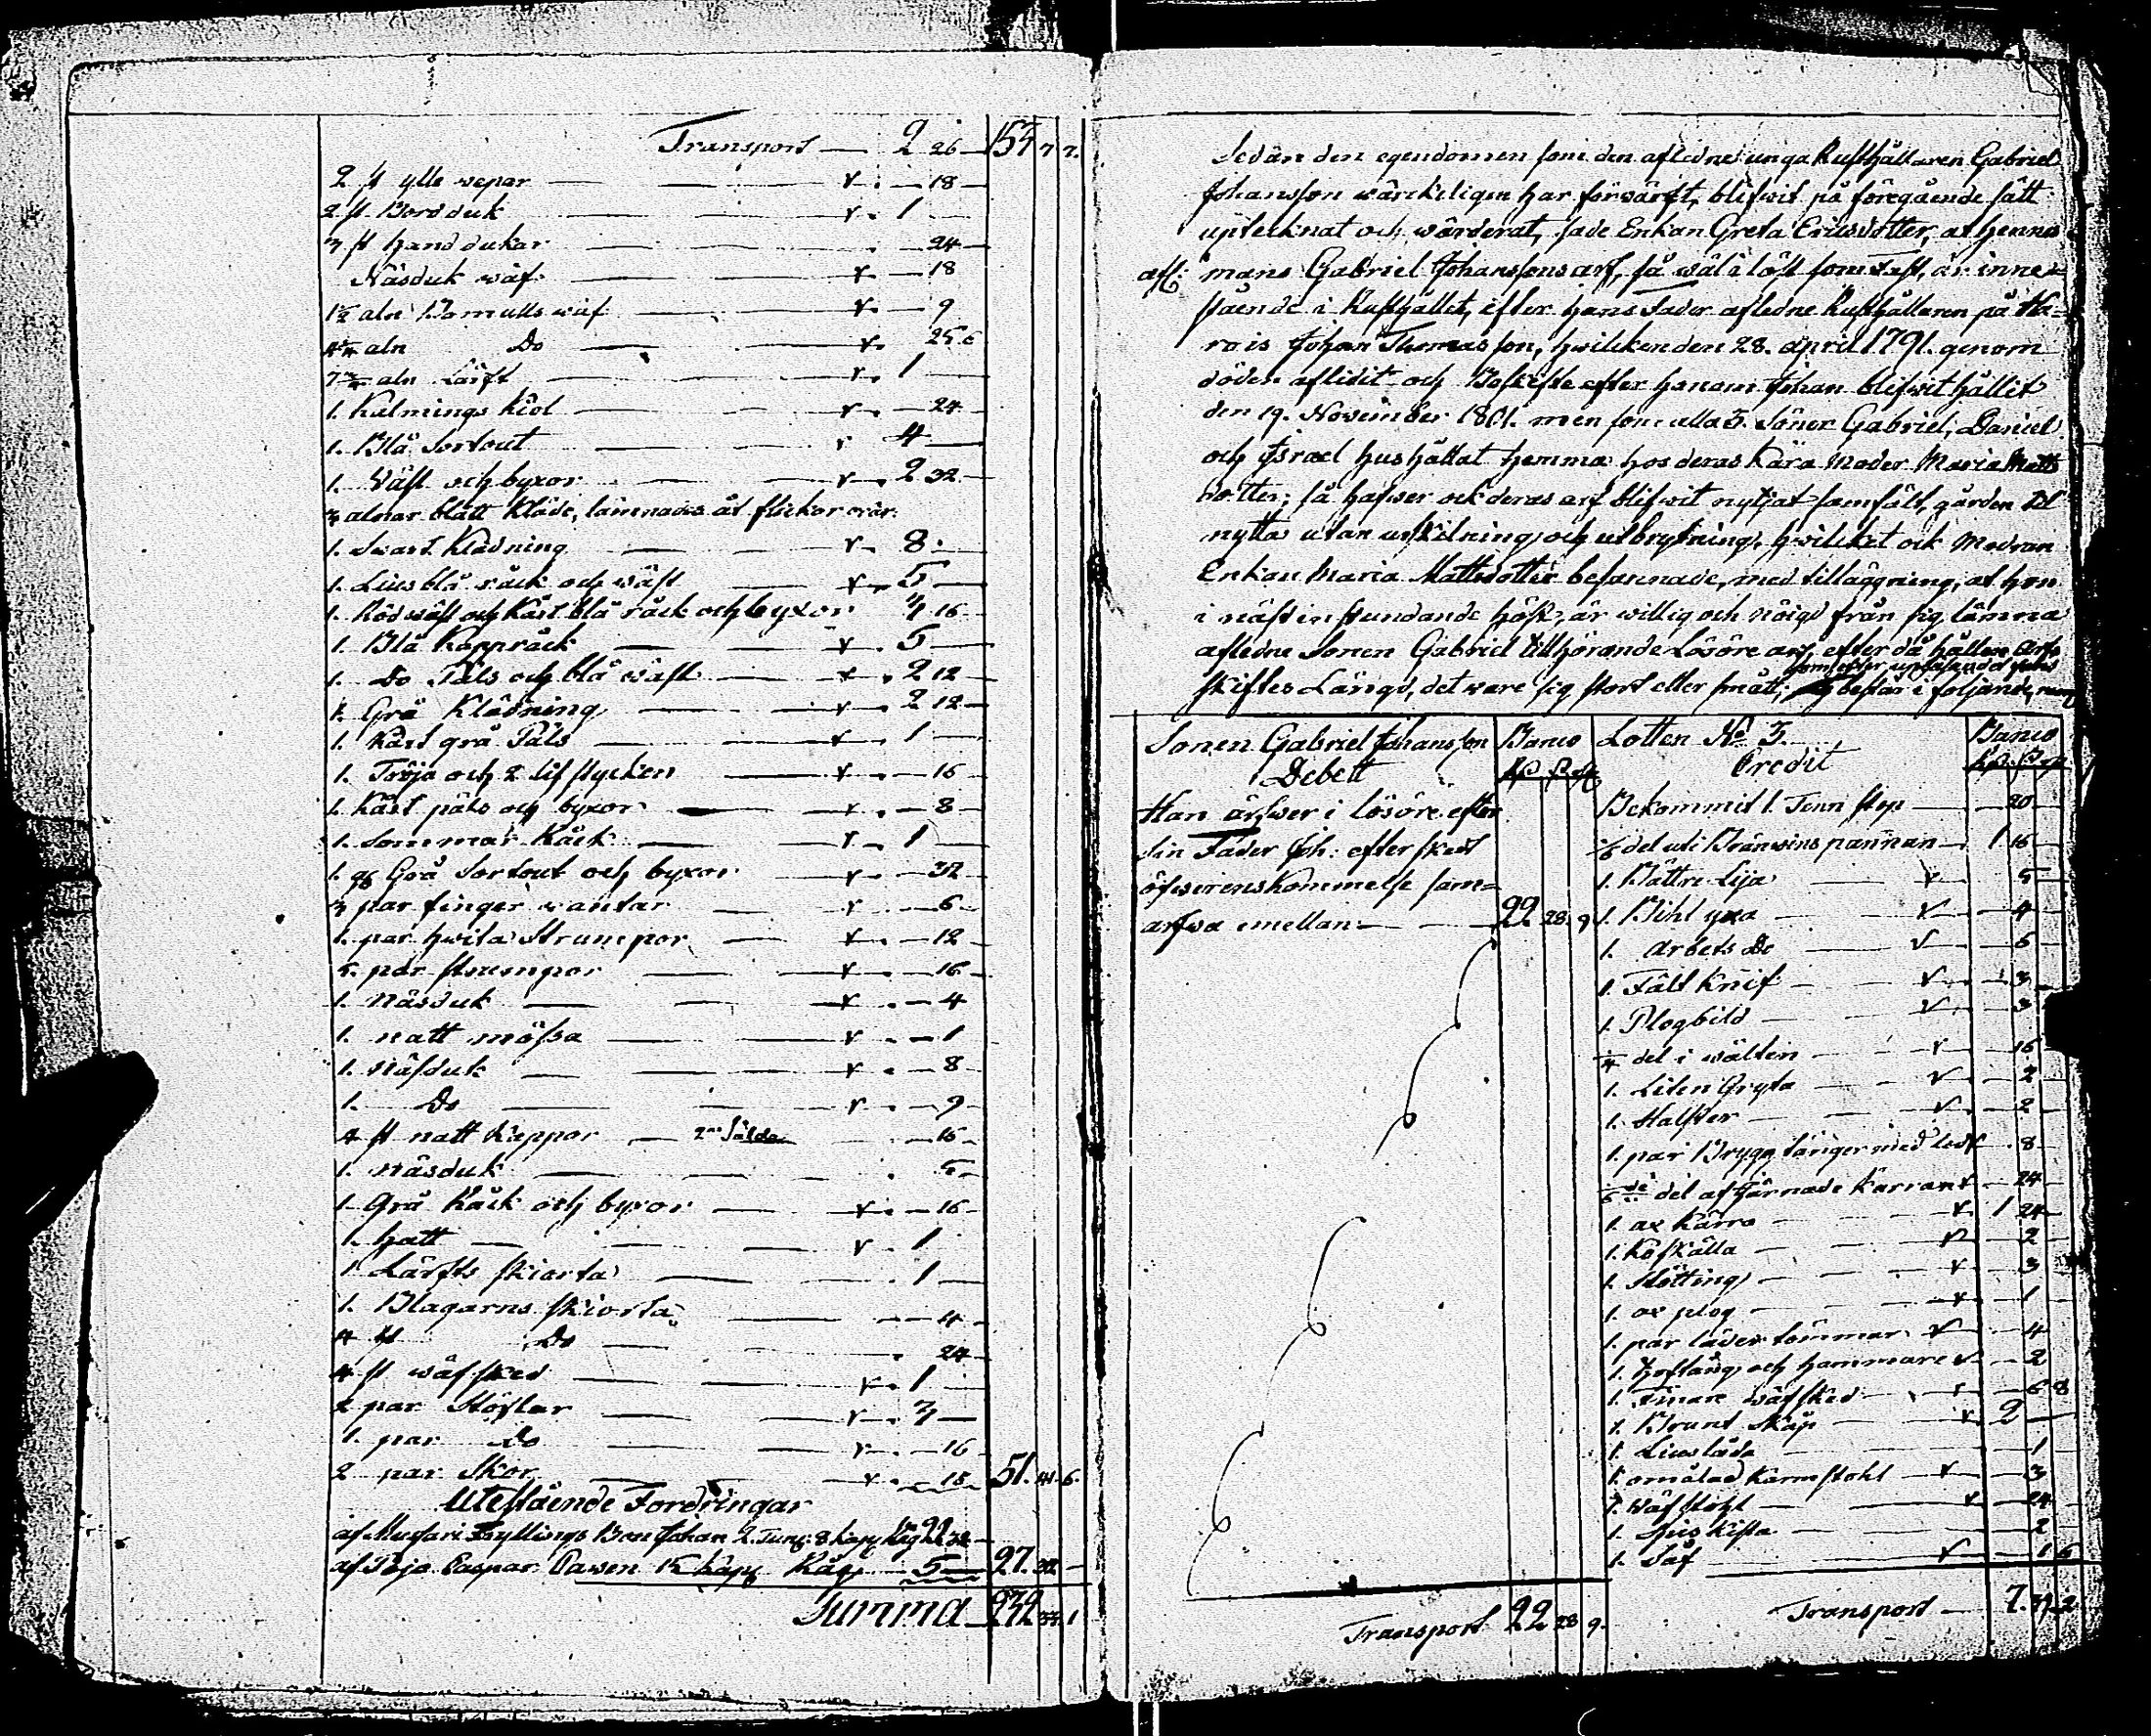 Transport — 2 26 — 153 7 7.
2 st ylle vepor — v. — 18 —
2 st. Bordduk — v. 1 —
3 st handdukar — . — 24 —
Näsduk wäf — v. — 18
1½ aln Bomulls wäf — v. — 9
aln Do — v. 25 6
7¾ aln Lärft — v. 1 —
1. Kalmings kiol — v. — 24 —
1. Blå Sortout — v 4 —
1. Wäst och byxor — v. 2 32 —
3 alnar blått Kläde, lämnades åt flickorna
1. Swart Klädning — v. 8. —
1. Lius blå råck och wäst — v. 5 —
1. Röd wäst och kårt blå råck och byxor 3 16 —
1. Blå Kappråck — v. 5 —
1. Do Päls och blå wäst — v. 2 12 —
1. Grå Klädning — v. 2 12 —
1. Kårt grå Päls — v. 1 —
1. Tröja och 2 lifstycken — v. — 16 —
1. Kårt päls och byxor — v. — 8 —
1. Sommar Råck — v. 1 —
1. Grå Sortout och byxor — v. — 32 —
3 par finger wantar — v — 6 —
1. par hwita Strumpor — v. — 12 —
5. par strumpor — v. — 16 —
1. Näsduk — v. — 4
1. natt mössa — v. — 1
1. Näsduk — v. — 8 —
1. Do — v. — 9 —
4 st natt kappor — 2ne Sålda — 16 —
1. Näsduk — . 5 —
1. Grå Råck och byxor — v. — 16 —
1. hatt — v. 1 —
1. Lärfts skiorta — . 1 —
1. Blagarns skiorta — — 4 —
4 st Do — . 24 —
4 st wäfsked — v. 1 —
2 par Stöflar — v. 3 —
1. par Do — v. — 16 —
2 par Skor — v. — 18 51. 41. 6.
Utestående Fordringar
af Johan 2. Tunn: 8 kapp Råg 22 32 —
af Caspar 15 kapp Råg — 5 — 27. 32 —
Summa 232 33 1
Sedan den egendomen som den aflednE unga Rusthållaren Gabriel
Johansson wärckeligen har förwärft, blifwit på föregående sätt
uptecknat och wärderat, sade Enkan Greta Ericsdotter, at hennes
afl: mans Gabriel Johanssons arf, så wäl i löst som fast, är inne=
stående i Rusthållet, efter hans Fader afledne Rusthållaren på Ha=
rois Johan Thomasson, hwilcken den 28. April 1791. genom
döden aflidit och Boskifte efter honom Johan blifwit hållit
den 19. November 1801. men som alla 3. Söner Gabriel, Daniel
och Israel hushållat hemma hos deras Kära Moder Maria Matts
dotter; så hafwer ock deras arf blifwit nyttjat samfält, gården til
nytta utan urskilning och utbrytning, hwilcket ock Modren
Enkan Maria Mattsdotter besannade, med tilläggning, at hon
i näst instundande höst, är willig och nöigd från sig lämna
afledne Sonen Gabriel tillhörande Lösöre arf, efter då hållen Arf
skiftes Längd, det ware sig stort eller smått; består i följande, nem
Sonen Gabriel Johansson Banco
Debett
Han ärfwer i lösöre efter
sin Fader Joh: efter skedt
öfwerenskommelse sam=
arfwa emellan — 22 28. 9
Transport 22 28 9.
Lotten No 3. Banco
Credit
Bekommit 1. Tenn stop — 20 —
1/6 del uti Bränwins pannan — 1 16 —
1. Bättre Lija — v — 5
1. Bihl yxa — v — 4
1. Arbets Do — v — 5
1. Fält Knif — v — 3
1. Plogbild — v — 3
¼ del i wälten — v — 16
1. Liten Gryta — v — 2
1. Halster — v — 2
1. par Brygg tänger med lod — 8
1/6 del af Järnade Kärran v — 24
1. ax kärra — v. 1 24
1. Koskälla — v — 2
1. Slötting — v — 3
1. ox plog — v — 1
1. par läder tömmar v — 4
1. Hoftång och hammare v — 2
1. Finare wäfsked — v — 6 8
1. Brunt Skåp — v 2 —
1. Lius låda — 1
1. omålad Karmstohl — v — 3
1. Wäfstohl — v — 24
1. hus kista — 2
1. Såf — v — 1 6
Transport — 7. 39 2